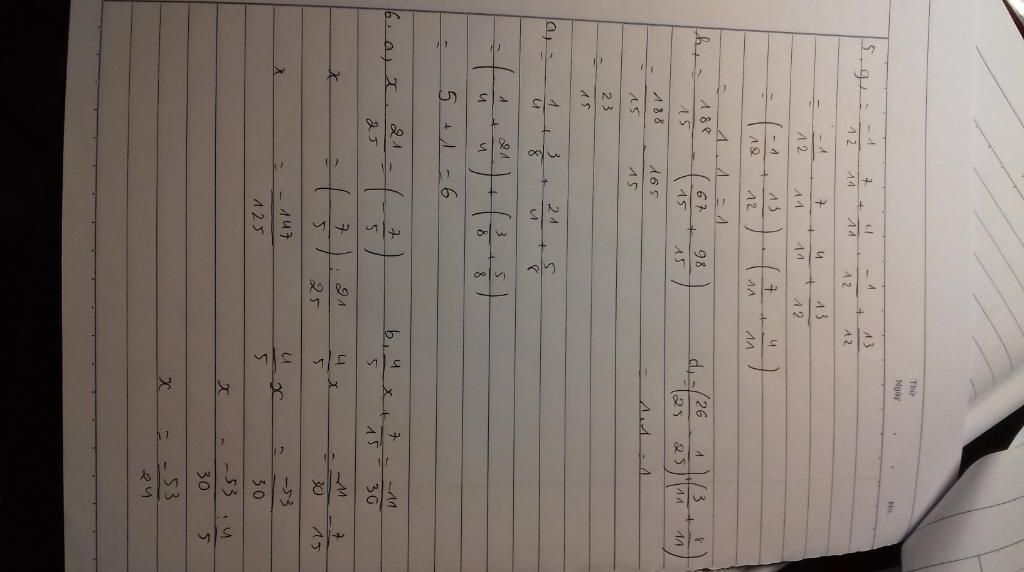 Thứ
Ngày . . No.
5. g, = -1/12 . 7/11 + 4/11 . -1/12 + 13/12
= -1/12 . 7/11 . 4/11 + 13/12
= (-1/12 + 13/12) . (7/11 + 4/11)
= 1 . 1 = 1
h, = 188/15 - (67/15 + 98/15)
= 188/15 - 165/15
= 23/15
d, = (26/25 - 1/25) . (3/11 + 8/11)
= 1 . 1 = 1
a, = 1/4 + 3/8 + 21/4 + 5/8
= (1/4 + 21/4) + (3/8 + 5/8)
= 5 + 1 = 6
6. a, x . 21/25 = (-7/5)
x = (7/5) : 21/25
x = -147/125
b, 4/5 x + 7/15 = -11/30
4/5 x = -11/30 - 7/15
4/5 x = -53/30
x = -53/30 : 4/5
x = -53/24